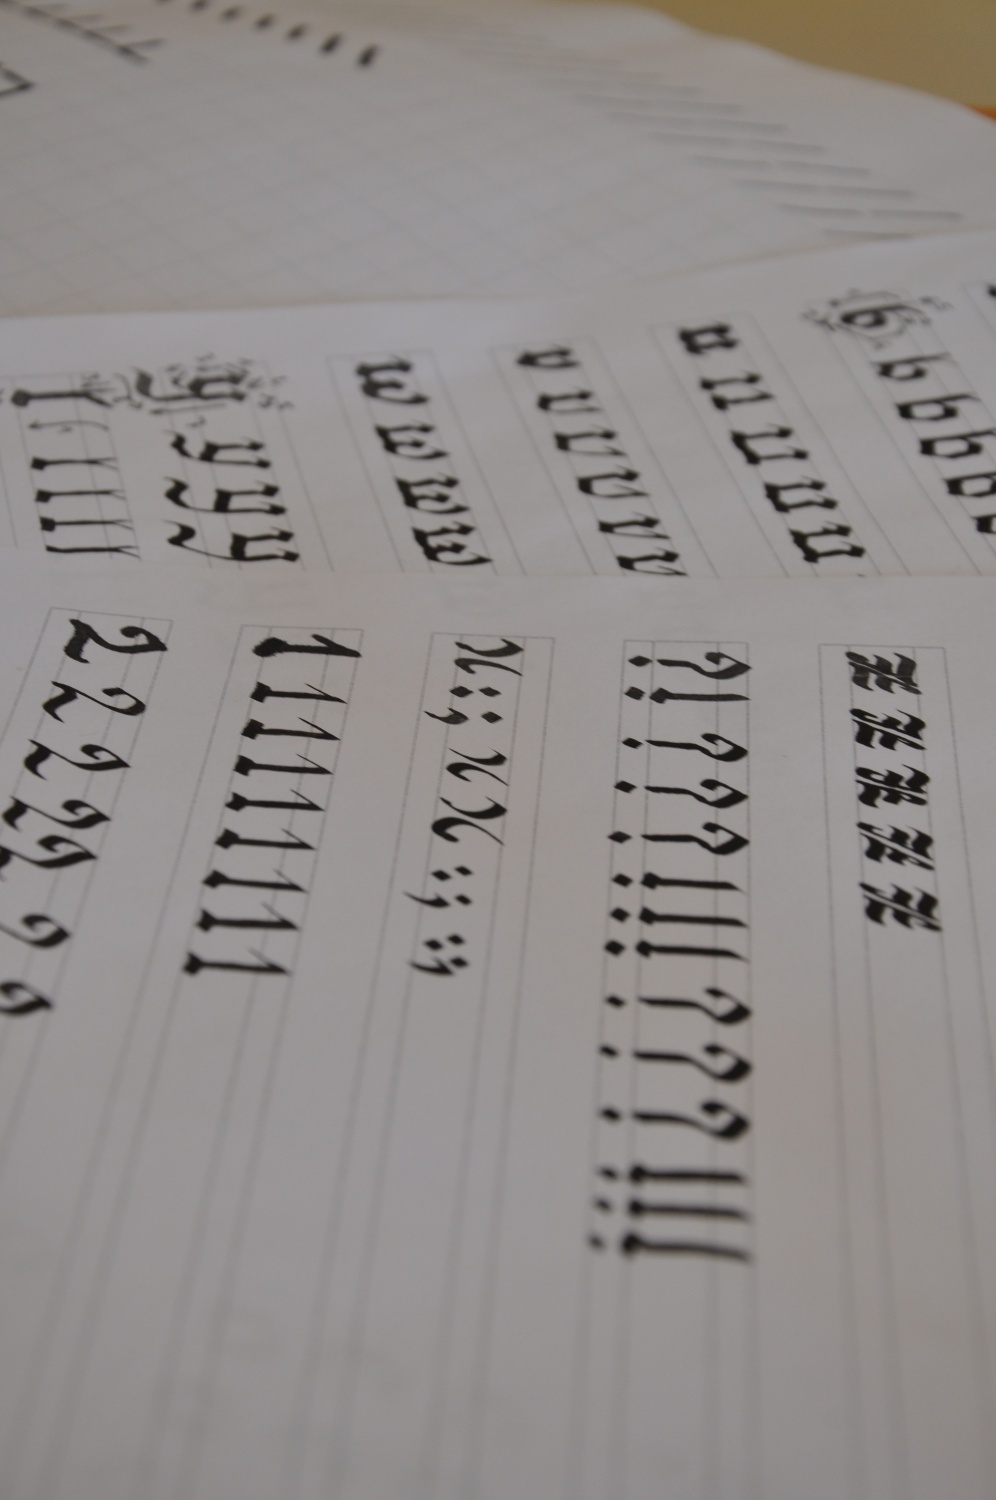 b b b b b
u u u u u
v v v v v v
w w w w
y y y y
? ! ? ? ? ! ! ! ? ? ? ! ! !
x : ; x x : ; : ;
1 1 1 1 1 1 1 1 1
2 2 2 2 2 2 2